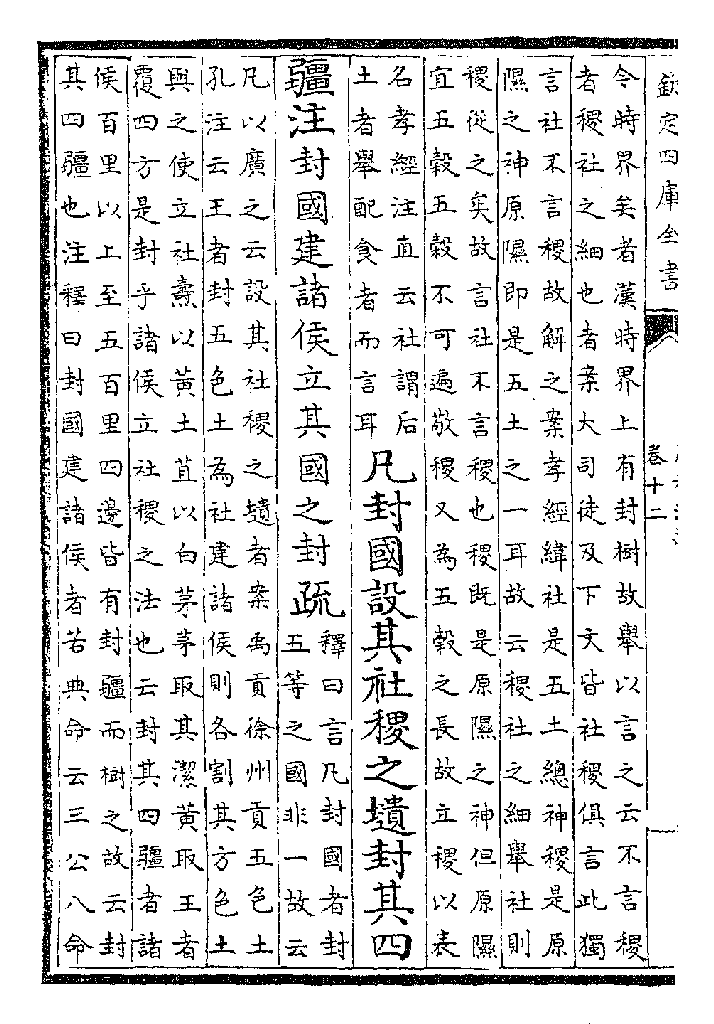 欽定四庫全書
卷十二
令時界矣者漢時界上有封樹故舉以言之云不言稷
者稷社之細也者案大司徒及下文皆社稷俱言此獨
言社不言稷故解之案孝經緯社是五土總神稷是原
隰之神原隰即是五土之一耳故云稷社之細舉社則
稷從之矣故言社不言稷也稷既是原隰之神但原隰
宜五穀五穀不可遍敬稷又為五穀之長故立稷以表
名孝經注直云社謂后
土者舉配食者而言耳
凡封國設其社稷之壝封其四
疆注封國建諸侯立其國之封疏
釋曰言凡封國者封
五等之國非一故云
凡以廣之云設其社稷之壝者案禹貢徐州貢五色土
孔注云王者封五色土為社建諸侯則各割其方色土
與之使立社燾以黃土苴以白茅茅取其潔黃取王者
覆四方是封乎諸侯立社稷之法也云封其四疆者諸
侯百里以上至五百里四邊皆有封疆而樹之故云封
其四疆也注釋曰封國建諸侯者若典命云三公八命